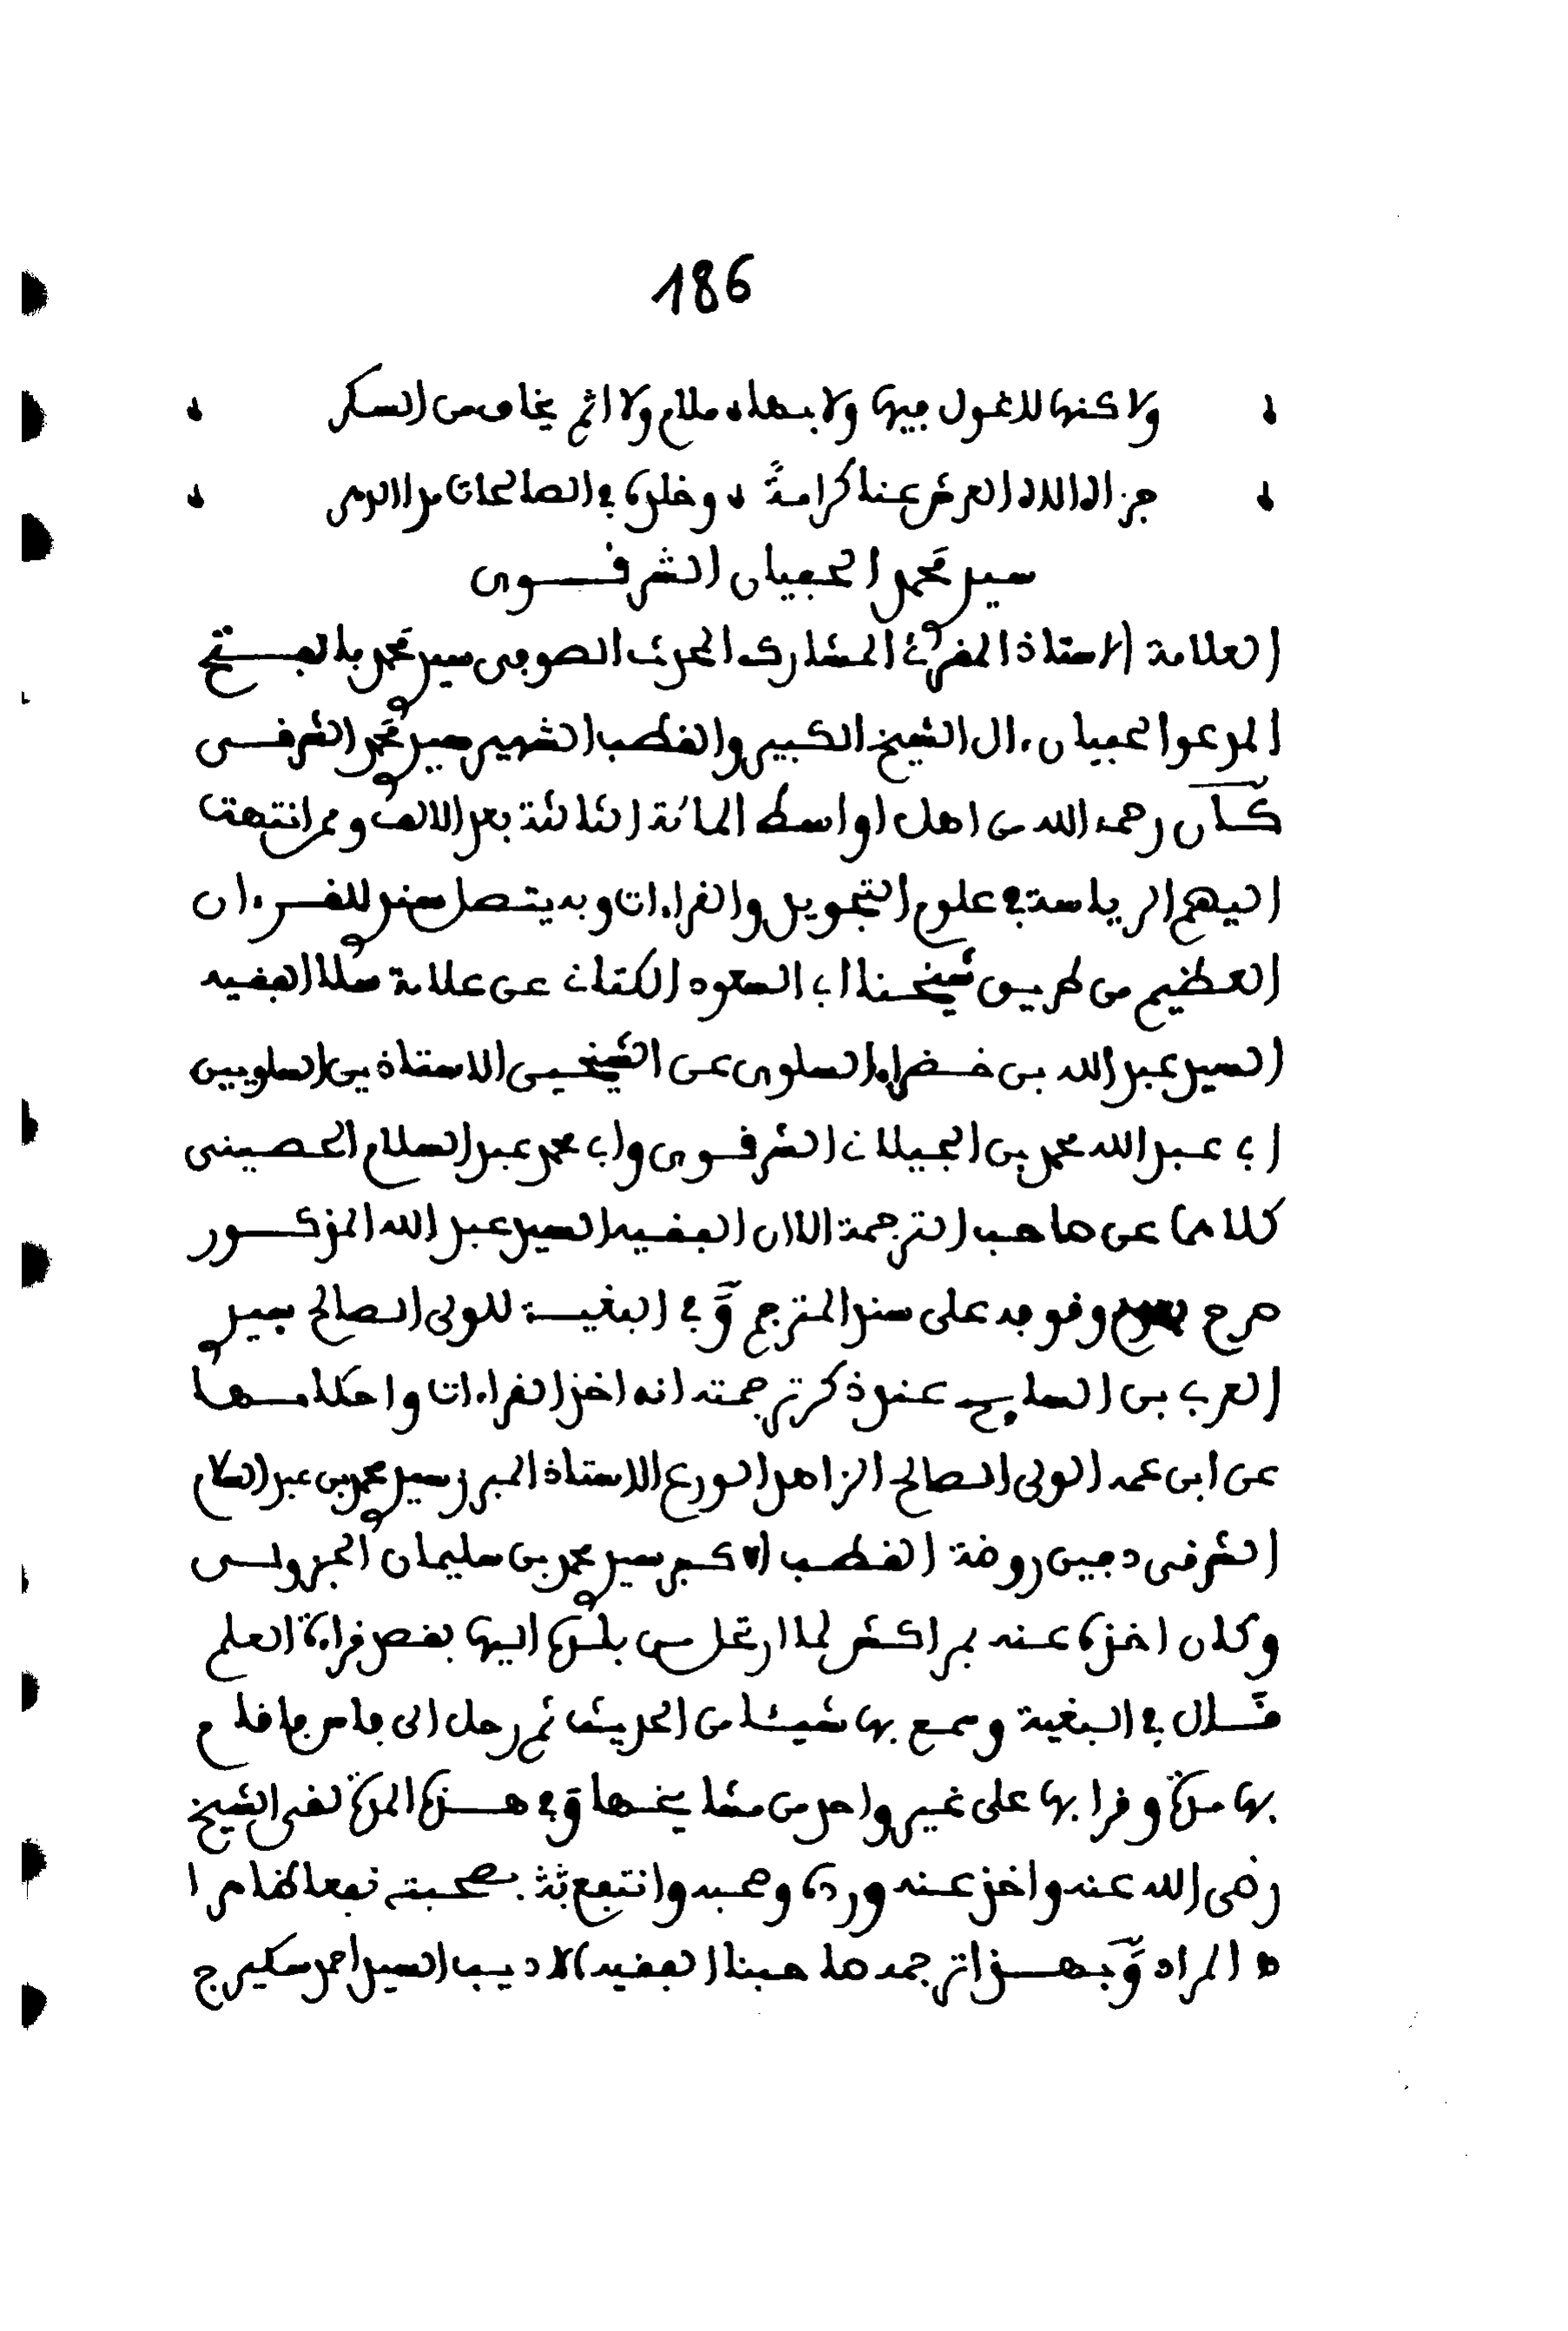 186
ولاكنها لا غول فيها ولا بها ملام ولا اثم يخاف من السكر
جزاه الاله العرش عنا كرامة وخلده في الصالحات مدا الدهر
سيدي محمد الحفيان الشرقوي
العلامة الاستاذ المقرئ المشارك المحدث الصوفي سيدي محمد بالفتح
المدعو الحفيان ءال الشيخ الكبير والقطب الشهير سيدي محمد الشرقي
كان رحمه الله من اهل اواسط المائة الثالثة بعد الالف وممن انتهت
اليهم الرياسة في علوم التجويد والقراءات وبه يتصل سندي للقرءان
العظيم من طريق شيخنا ابي السعود الكتاني عن علامة سلا الفقيه
السيد عبد الله بن خضراء السلوي عن الشيخين الاستاذين السلويين
ابي عبد الله محمد بن الجيلاني الشرقوي وابي محمد عبد السلام الحصيني
كلاهما عن صاحب الترجمة الا ان الفقيه السيد عبد الله المذكور
صرح وقوفه على سند المترجم وفي البغية للولي الصالح سيدي
العربي بن السايح عند ذكر ترجمته انه اخذ القراءات واحكامها
عن ابن عمه الولي الصالح الزاهد الورع الاستاذ المبرز سيدي محمد بن عبد السلام
الشرقي دفين روضة القطب الاكبر سيدي محمد بن سليمان الجزولي
وكان اخذه عنه بمراكش لما ارتحل من بلده اليها بقصد قراءة العلم
قال في البغية وسمع بها شيئا من الحديث ثم رحل الى فاس فاقام
بها مدة وقرا بها على غير واحد من مشايخها وفي هذه المدة لقي الشيخ
رضي الله عنه واخذ عنه ورده وصحبه وانتفع بصحبته نفعا خاصا
ه المراد وبهذا ترجمه صاحبنا الفقيه الاديب السيد احمد سكيرج